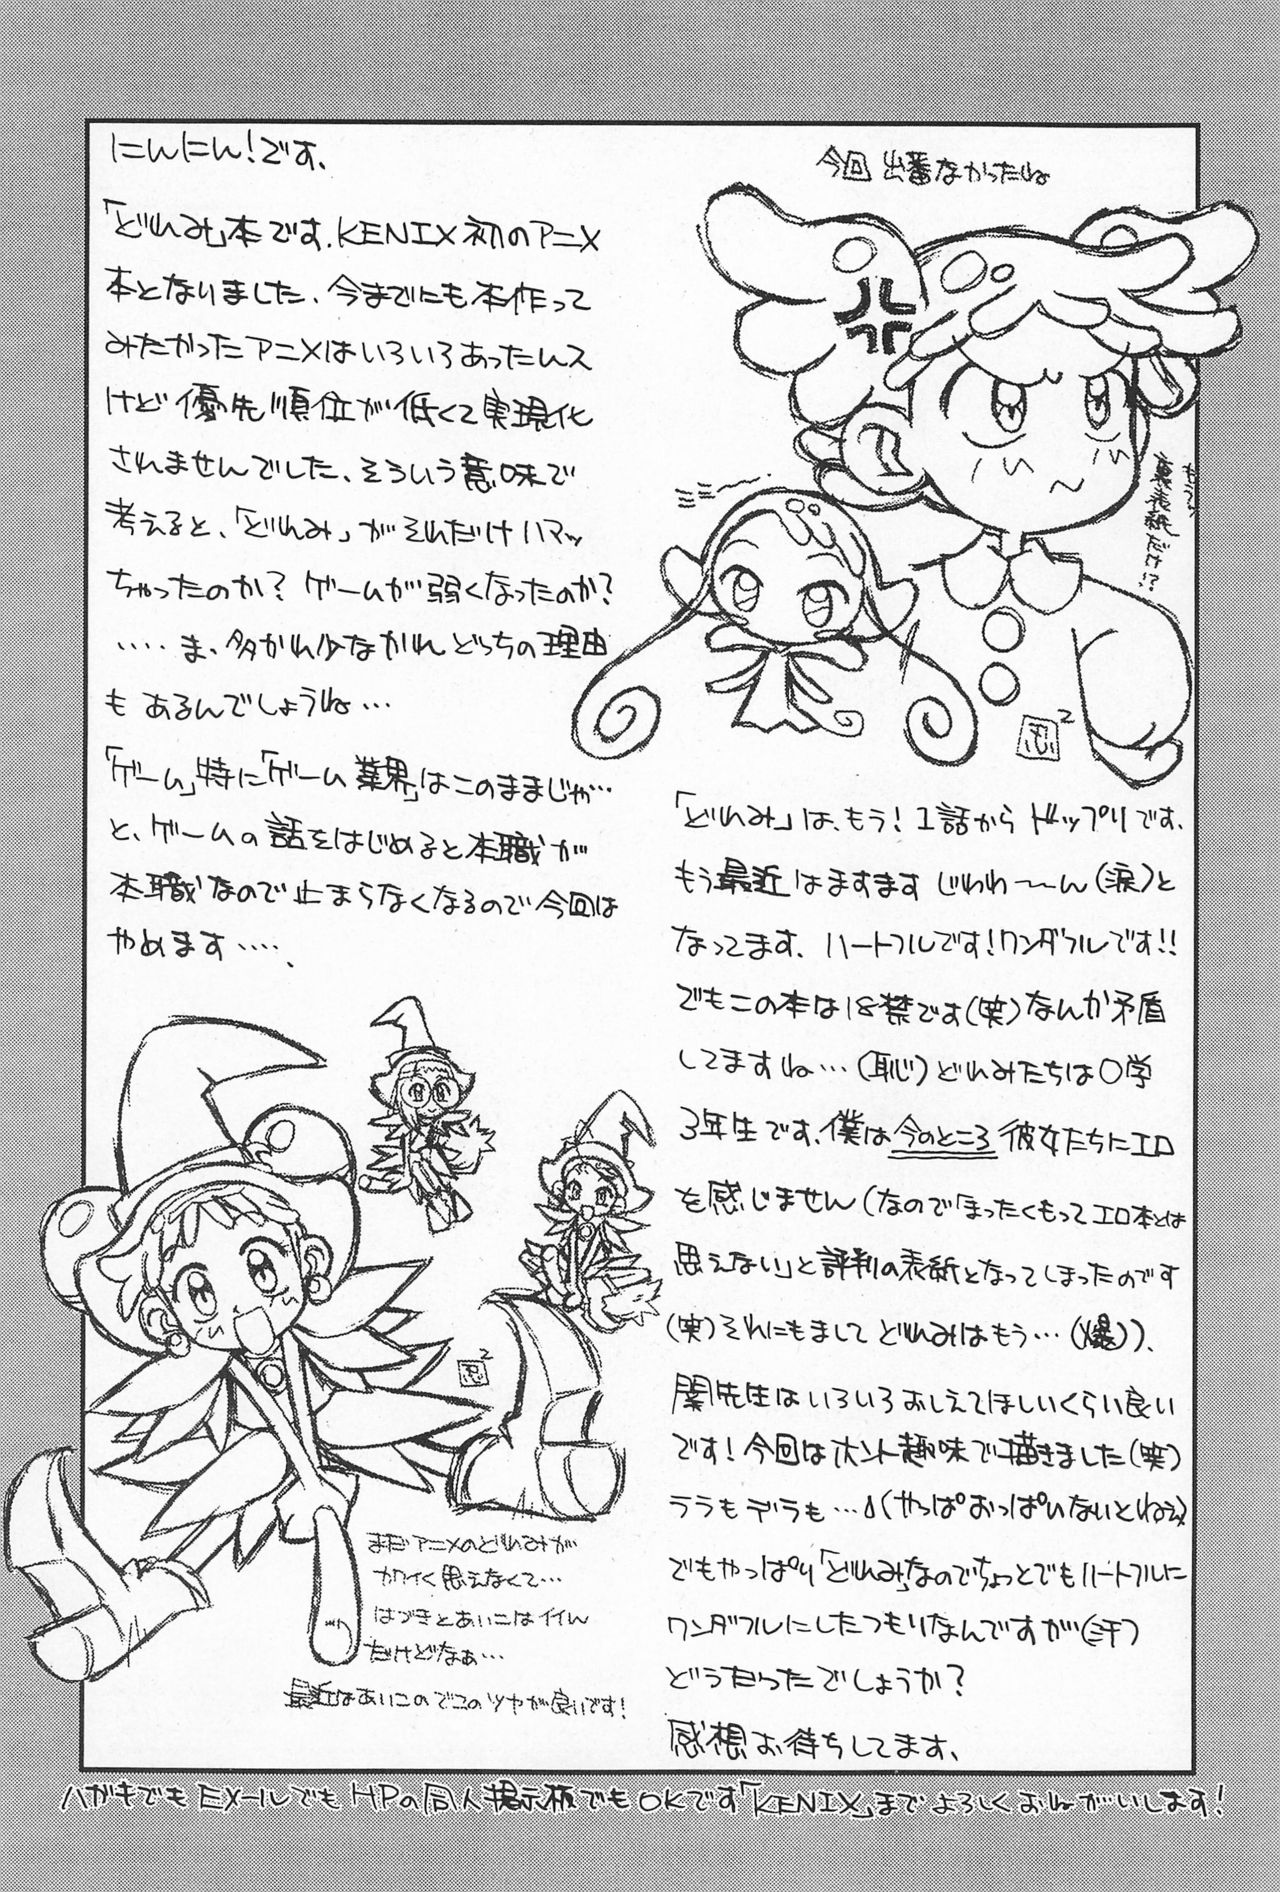 にんにん!です、
「どれみ」本です、KENIX初のアニメ
本となりました、今までにも本作って
みたかったアニメはいろいろあったんス
けど優先順位が低くて実現化
されませんでした、そういう意味で
考えると、「どれみ」がそれだけハマッ
ちゃったのか? ゲームが弱くなったのか?
‥‥ま、多かれ少なかれどっちの理由
もあるんでしょうね…
「ゲーム」特に「ゲーム業界」はこのままじゃ…
と、ゲームの話をはじめると本職が
本職なので止まらなくなるので今回は
やめます‥‥、
今回 出番なかったね
もって
裏表紙だけ!?
忍2
「どれみ」は、もう!1話からドップリです、
もう最近はますます じわわ〜〜ん(涙)と
なってます、ハートフルです!ワンダフルです!!
でもこの本は18禁です(笑)なんか矛盾
してますね…(恥)どれみたちは〇学
3年生です、僕は今のところ彼女たちにエロ
を感じません(なので「まったくもってエロ本とは
思えない」と評判の表紙となってしまったのです
(笑)それにもましてどれみはもう…(爆))、
関先生はいろいろおしえてほしいくらい良い
です!今回はホント趣味で描きました(笑)
ララもデラも…♪(やっぱおっぱいないとねぇ)
でもやっぱり「どれみ」なのでちょっとでもハートフルに
ワンダフルにしたつもりなんですが(汗)
どうだったでしょうか?
感想お待ちしてます、
忍2
まだアニメのどれみが
カワイく思えなくて…
はづきとあいこはイイん
だけどなぁ…
最近はあいこのデコのツヤが良いです!
ハガキでもEメールでもHPの同人掲示板でもOKです「KENIX」までよろしくおねがいします!